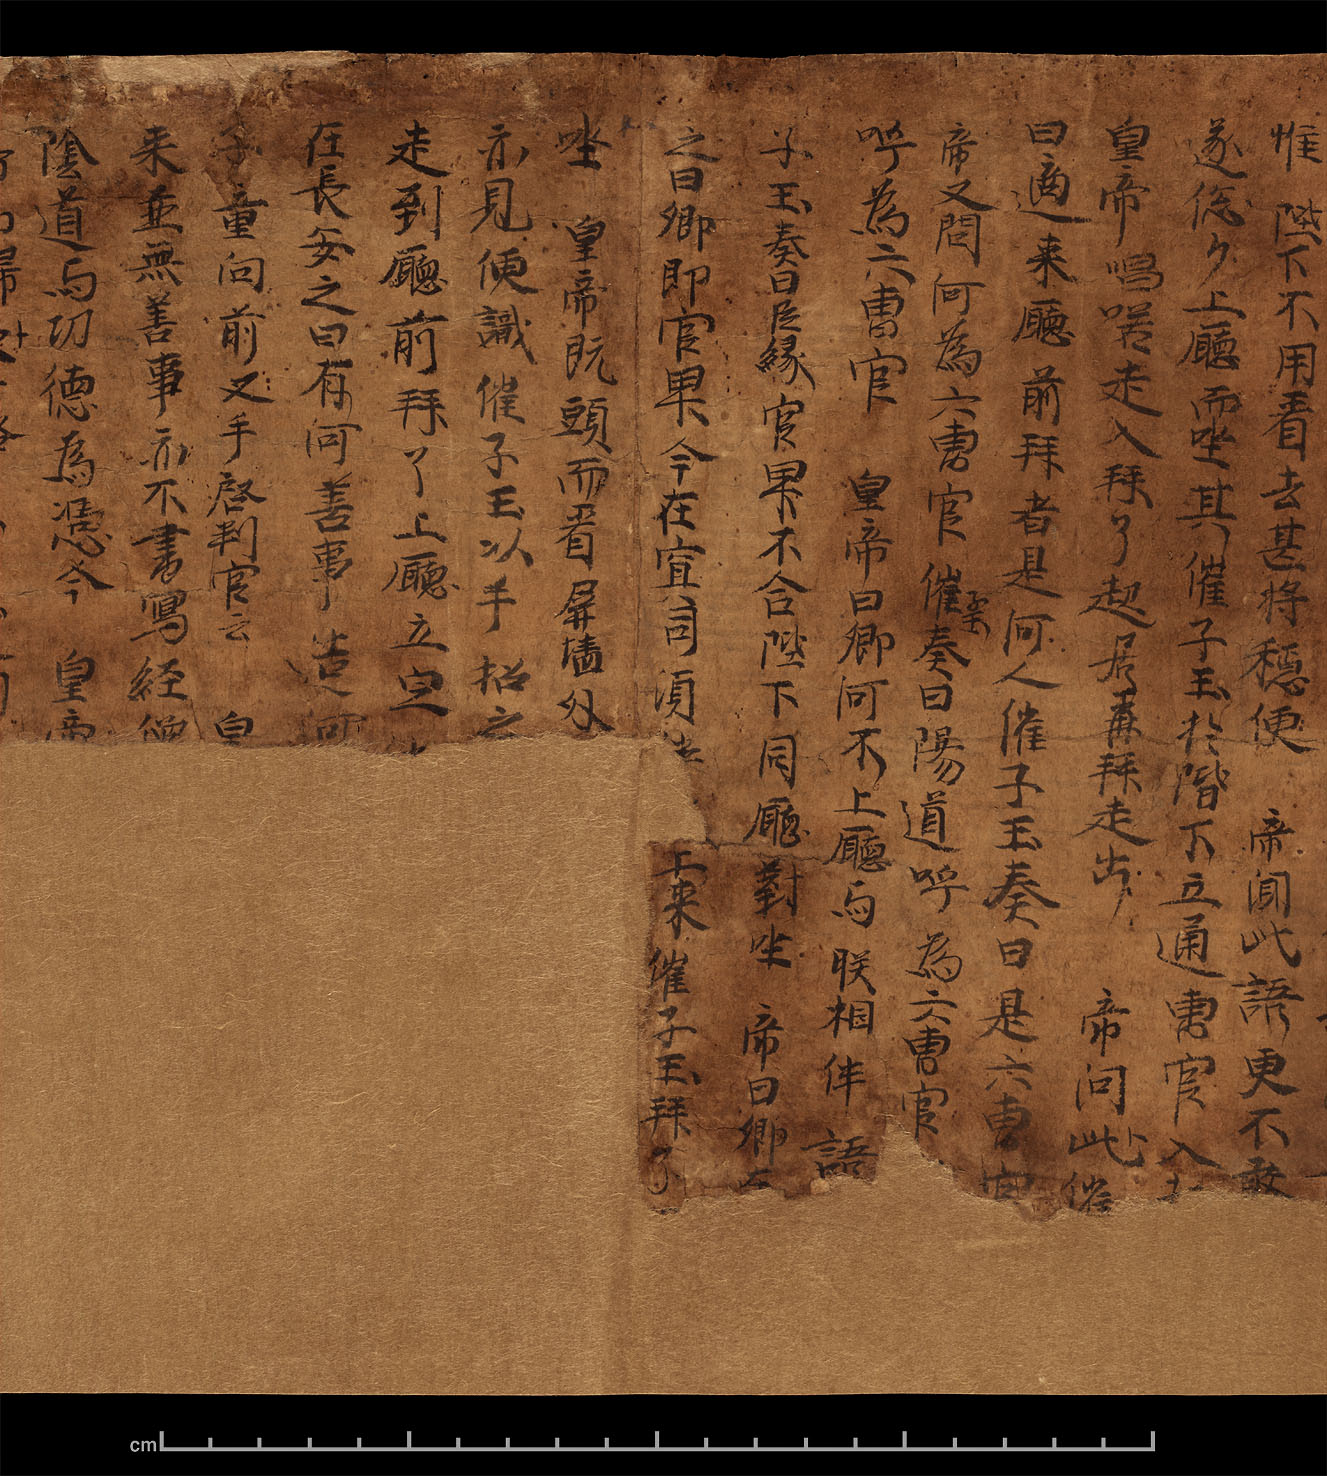 惟 陛下不用看去甚将穩便 帝聞此語更不敢
遂惣夕上廳而坐其催子玉扵階下立通曺官入
皇帝唱喏走入拜了起居再拜走出 帝問此催
曰適来廳前拜者是何人催子玉奏曰是六曺官
帝又問何為六曺官催子玉奏曰陽道呼為六曺官
呼為六曺官 皇帝曰卿何不上廳与朕相伴語
子玉奏曰臣緣官卑不合陛下同廳對坐 帝曰卿
之曰卿即官卑今在冥司須 上来催子玉拜了
坐 皇帝既頭而看屏墻外
亦見便識催子玉以手招之
走到廳前拜了上廳立定
在長安之日有何善事造何
子童向前叉手啓判官云 皇
来並無善事亦不書寫経像
陰道与功德為憑今 皇帝
歸
cm